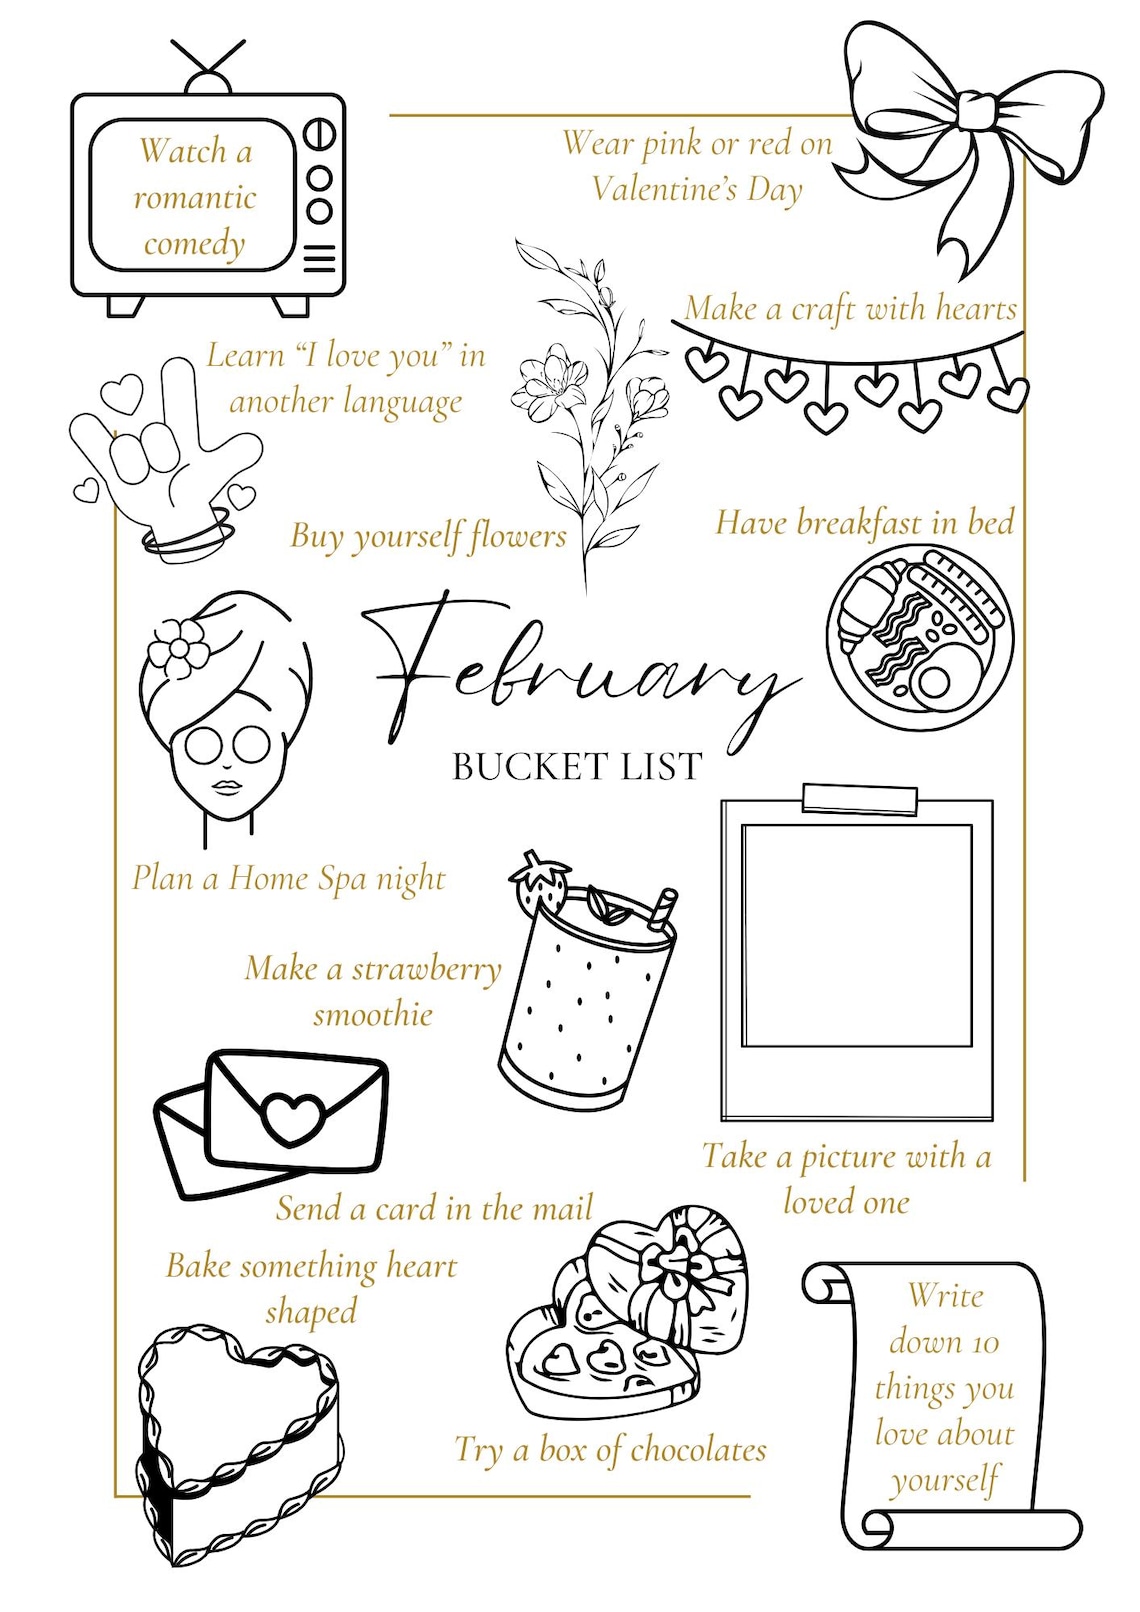 Watch a
romantic
comedy
Wear pink or red on
Valentine's Day
Make a craft with hearts
Learn “I love you” in
another language
Buy yourself flowers
Have breakfast in bed
February
BUCKET LIST
Plan a Home Spa night
Make a strawberry
smoothie
Take a picture with a
loved one
Send a card in the mail
Bake something heart
shaped
Try a box of chocolates
Write
down 10
things you
love about
yourself